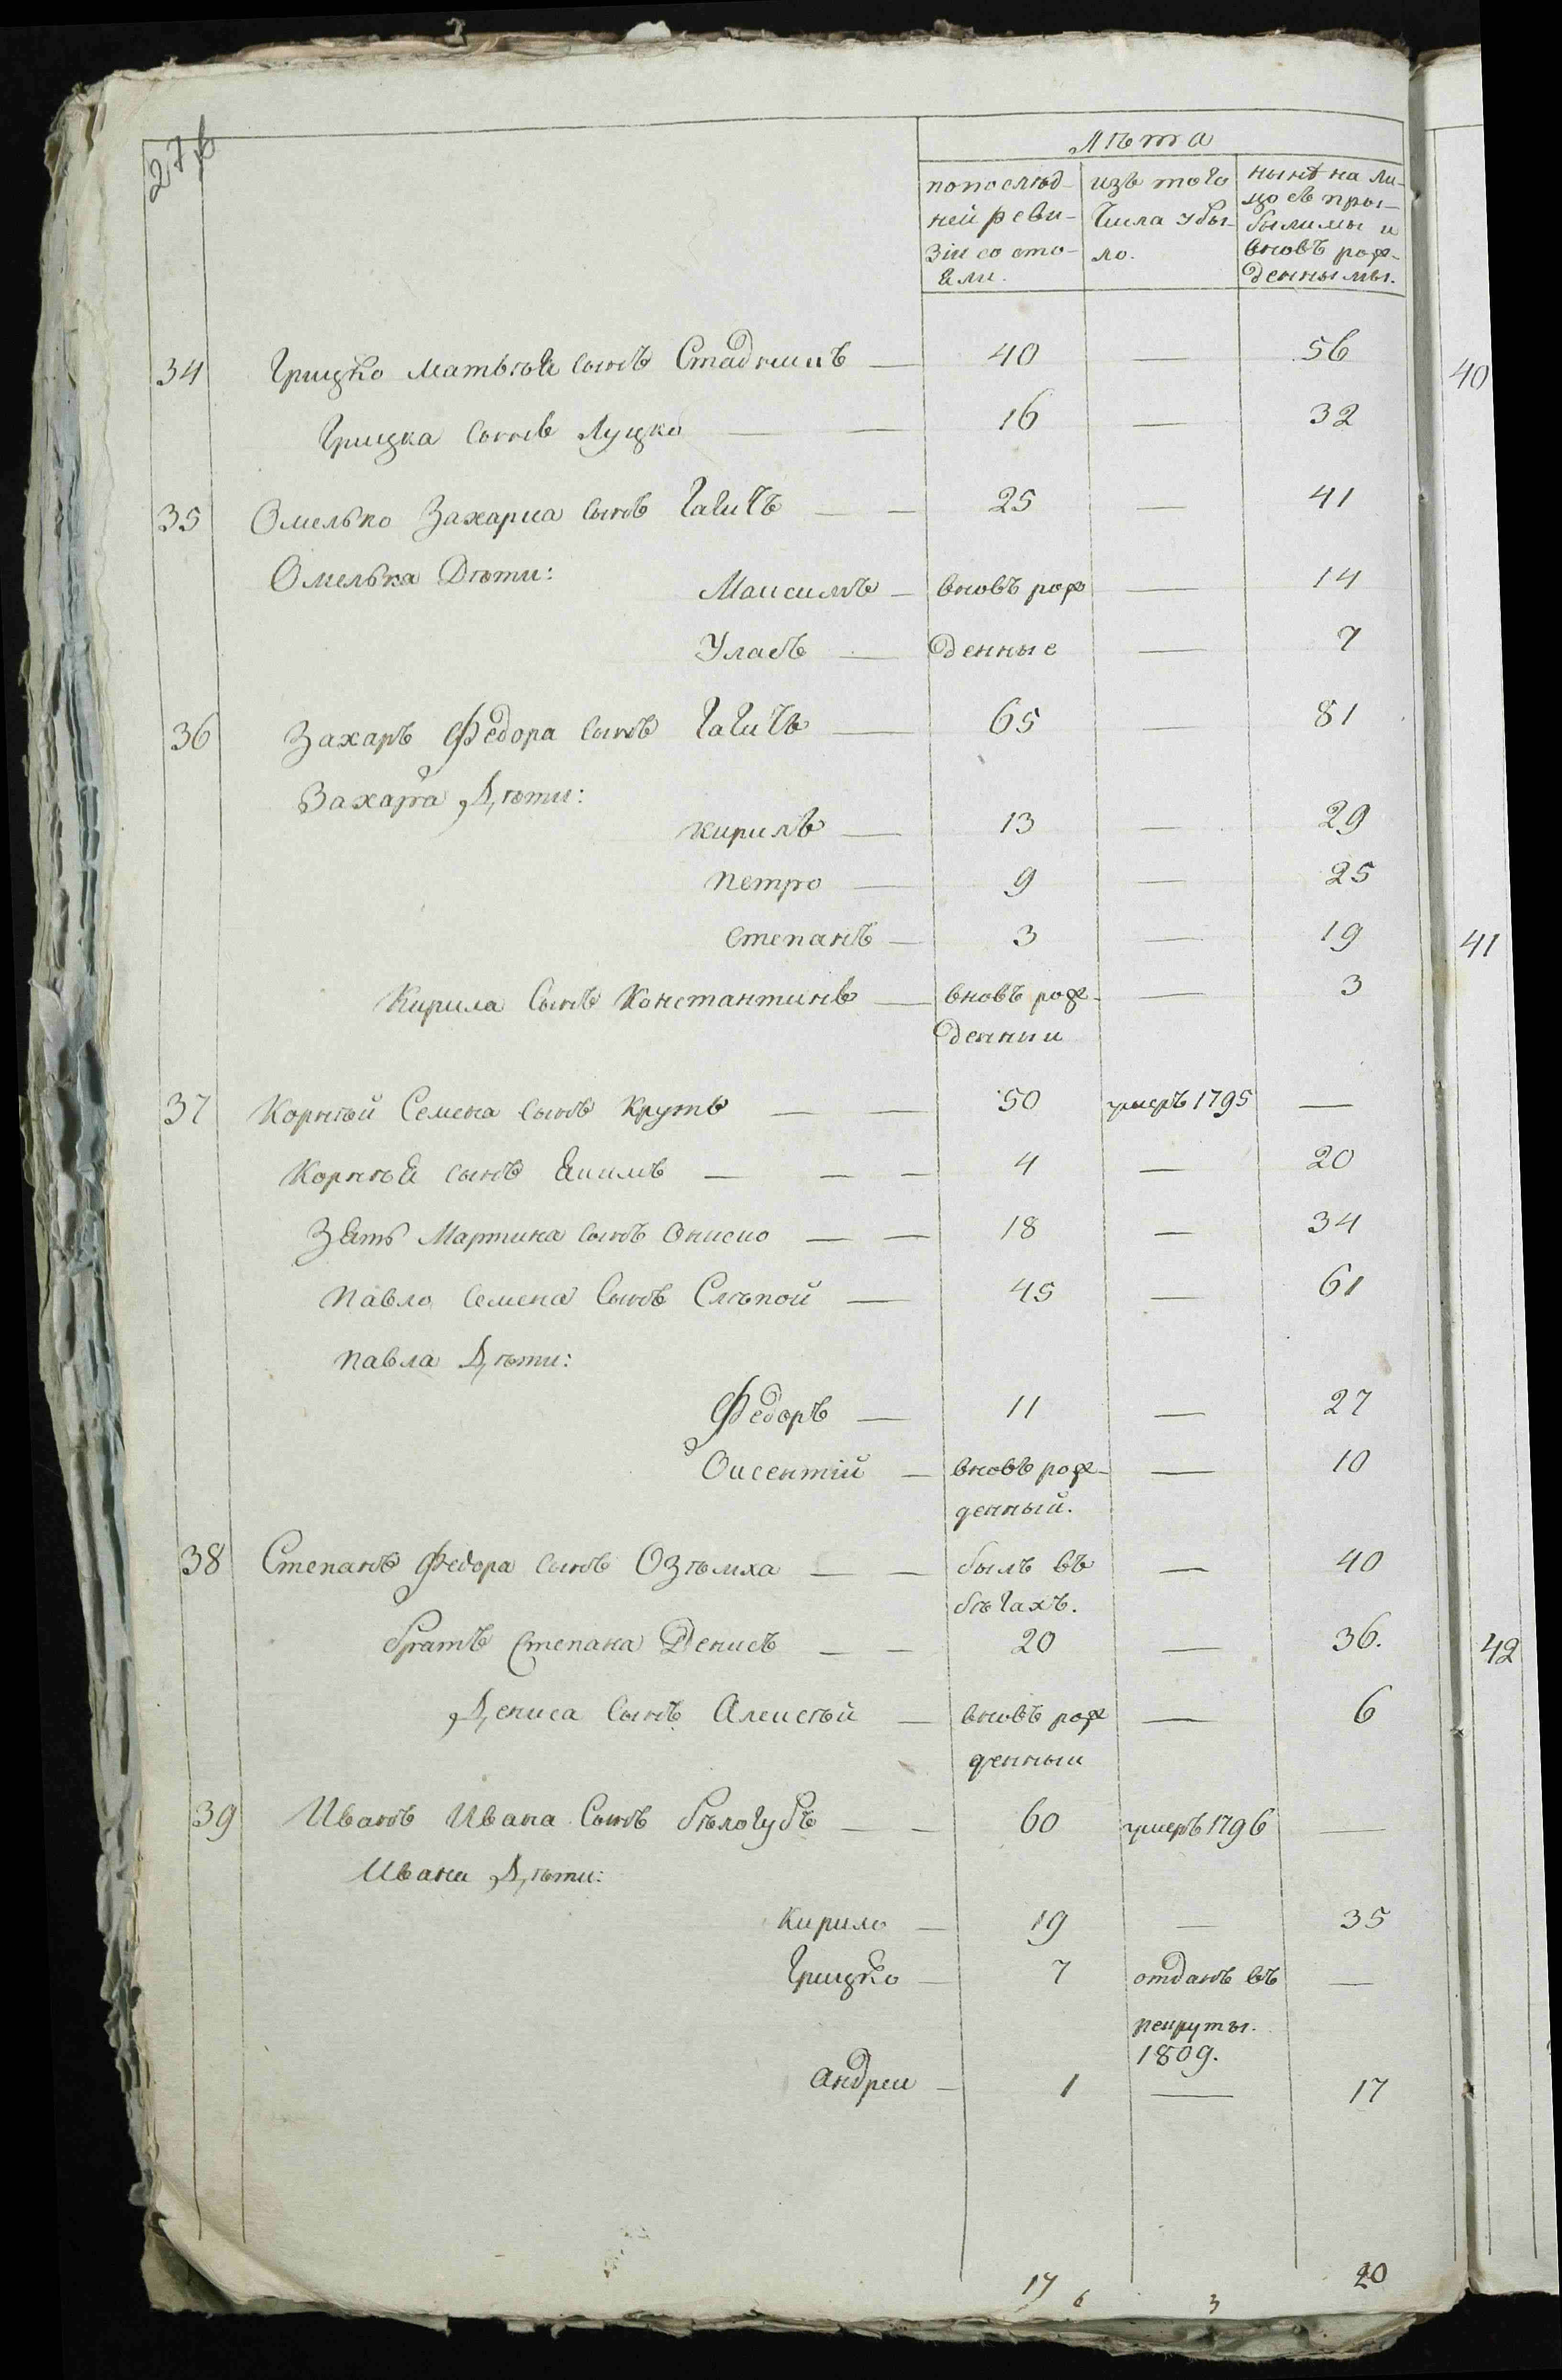 276
Лѣта
попослѣд- изъ того нынѣ на ли-
ней реви- числа убы- цо съ при-
зіи состо- ло. былимы и
яли. вновь рож-
денными.
34 Грицко Матвѣя сынъ — 40 — 56
Грицка сынъ Луцко — — 16 — 32
35 Омелько Захариа сынъ Гагичъ — — 25 — 41
Омелька Дѣти:
Маисимъ — вновь рож — 14
Уласъ — денные — 7
36 Захаръ Федора сынъ Гагичъ — 65 — 81
Захара Дѣти:
Кирилъ — 13 — 29
Петро — 9 — 25
Степанъ — 3 — 19
Кирила Сынъ Константинъ — вновь рож- — 3
денныи
37 Корнѣй Семена сынъ Крутъ — — 50 умеръ 1795 —
Корнѣя сынъ Яимъ — — — 4 — 20
Зять Мартина сынъ Онисио — — 18 — 34
Павло Семена Сынъ Слѣпой — 45 — 61
Павла Дѣти:
Федоръ — 11 — 27
Оисентій — вновь рож- — 10
денный.
38 Степанъ Федора сынъ — — былъ въ — 40
бѣгахъ.
братъ Степана Денисъ — — 20 — 36.
Дениса Сынъ Алеисѣй — вновь рож — 6
денныи
39 Иванъ Ивана Сынъ бѣлогубъ — — 60 умеръ 1796 —
Ивана Дѣти:
Кирило — 19 — 35
Грицко — 7 отданъ въ —
реируты.
1809.
Андреи — 1 — 17
17 6 3 20
40
41
42